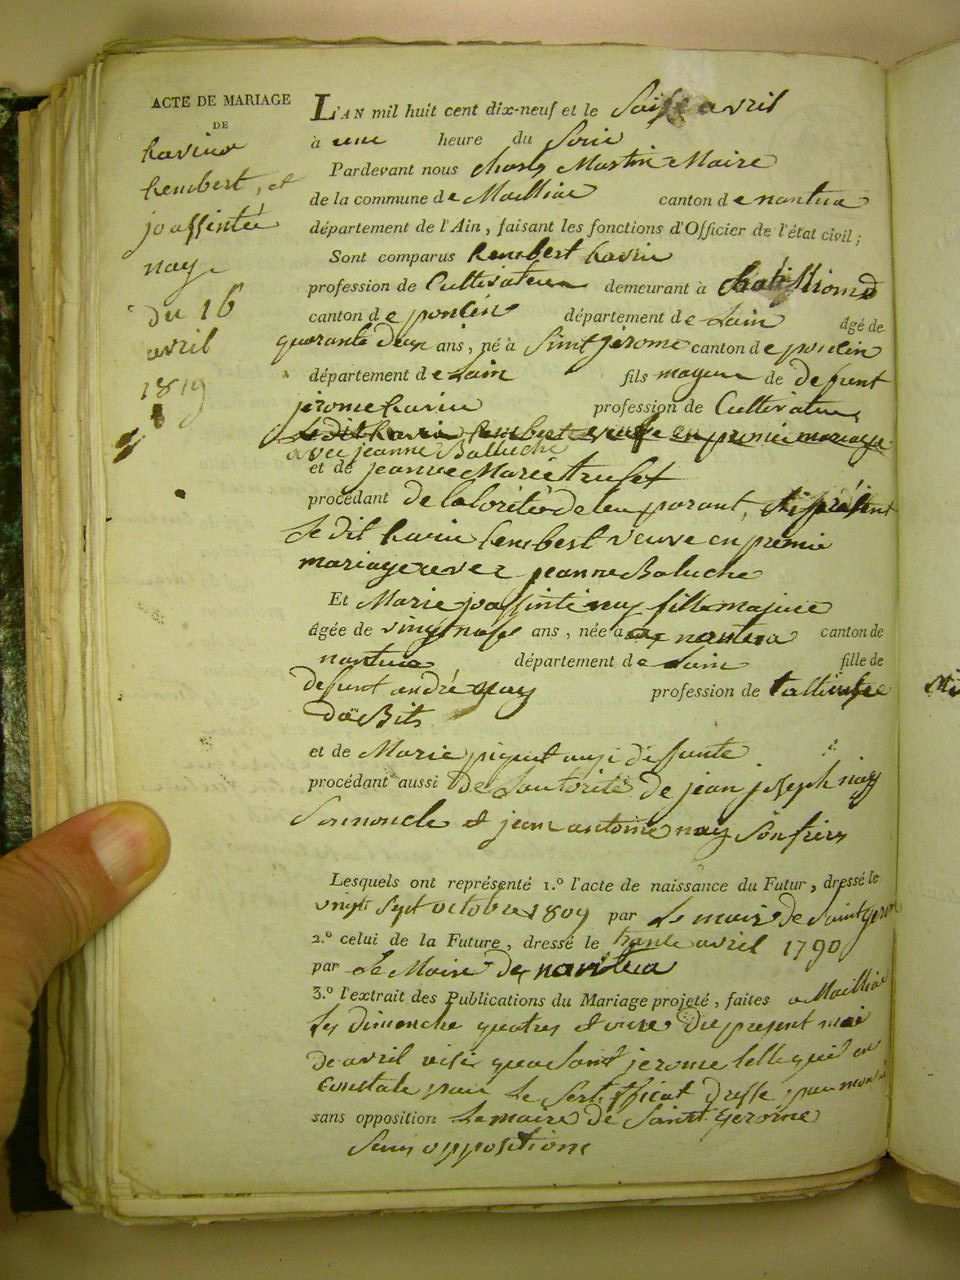 ACTE DE MARIAGE
DE
ravier
rembert, et
joassintée
nay
du 16
avril
1819
L'AN mil huit cent dix-neuf et le Saise avril
à une heure du Soir
Pardevant nous Charles Martin Maire
de la commune de Mailliac canton de nantua
département de l'Ain, faisant les fonctions d'Officier de l'état civil;
Sont comparus Rembert Ravier
profession de Cultivateur demeurant à
canton de poncin département de Lain âgé de
quarante deux ans, né à Sint jerome canton de poncin
département de Lain fils mageur de defunt
jerome Ravier profession de Cultivateur
Le dit Ravier Rembert veufe en premie mariage
avec jeanne Balluche
et de jeanne Marie trufet
procédant de lalorité de leu parant,
Le dit Ravier Rembert veuve en premie
mariage avec jeanne Baluche
Et Marie joassinte nay fille majure
âgée de vingt nuef ans, née a nantua canton de
nantua département de Lain fille de
defunt andré nay profession de
D'aBits
et de Marie piquet ausi deffunte
procédant aussi de Lautorité de jean joseph nay
Son noncle et jean antoine nay Son frere
Lesquels ont représenté 1.º l'acte de naissance du Futur, dressé le
vingt sept octobre 1809 par Le maire de Saint gerome
2.º celui de la Future, dressé le trante avril 1790
par Le Maire De nantua
3.º l'extrait des Publications du Mariage projeté, faites a Mailliac
Les dimenche quatres et onze du present moi
De avril insi qua Saint jerome telle quil en
Constate par Le Sertifficat dresse par monsi
sans opposition Le maire de Saint Gerome
Sans oppositions